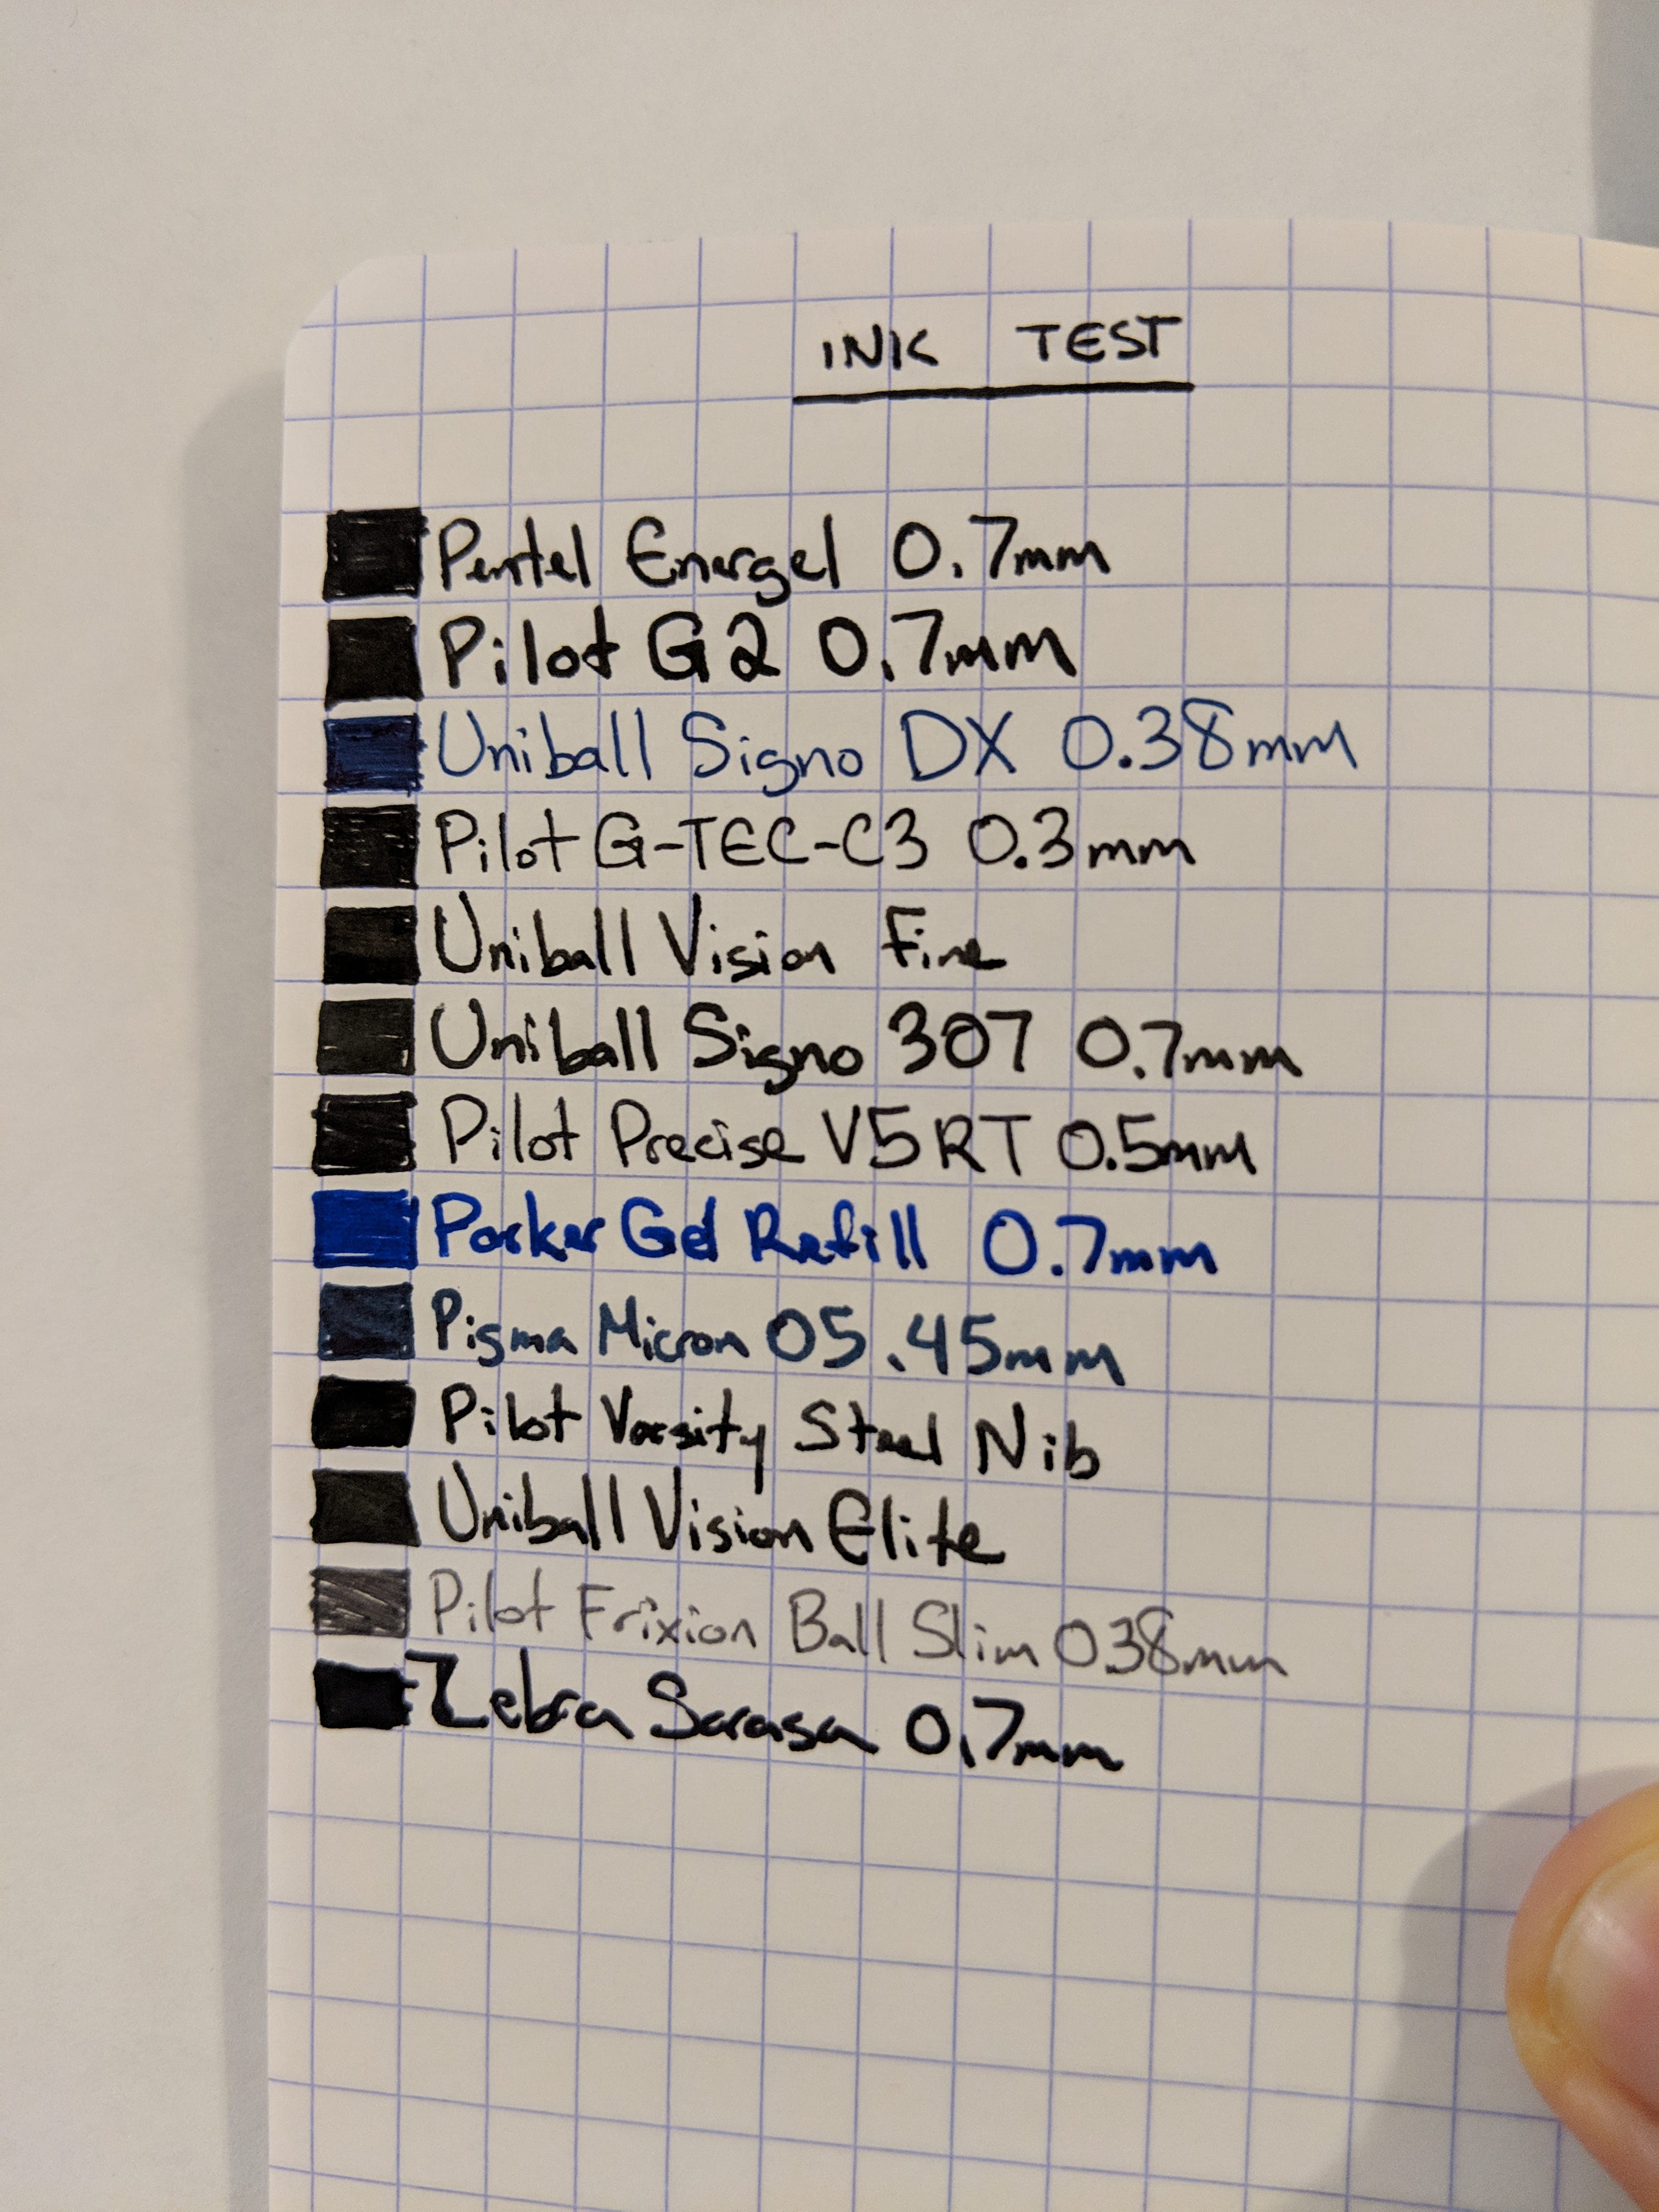 INK TEST
Pentel Energel 0.7mm
Pilot G2 0.7mm
Uniball Signo DX 0.38mm
Pilot G-TEC-C3 0.3mm
Uniball Vision Fine
Uniball Signo 307 0.7mm
Pilot Precise V5 RT 0.5mm
Parker Gel Refill 0.7mm
Pigma Micron 05 .45mm
Pilot Varsity Steel Nib
Uniball Vision Elite
Pilot Frixion Ball Slim 038mm
Zebra Sarasa 0.7mm